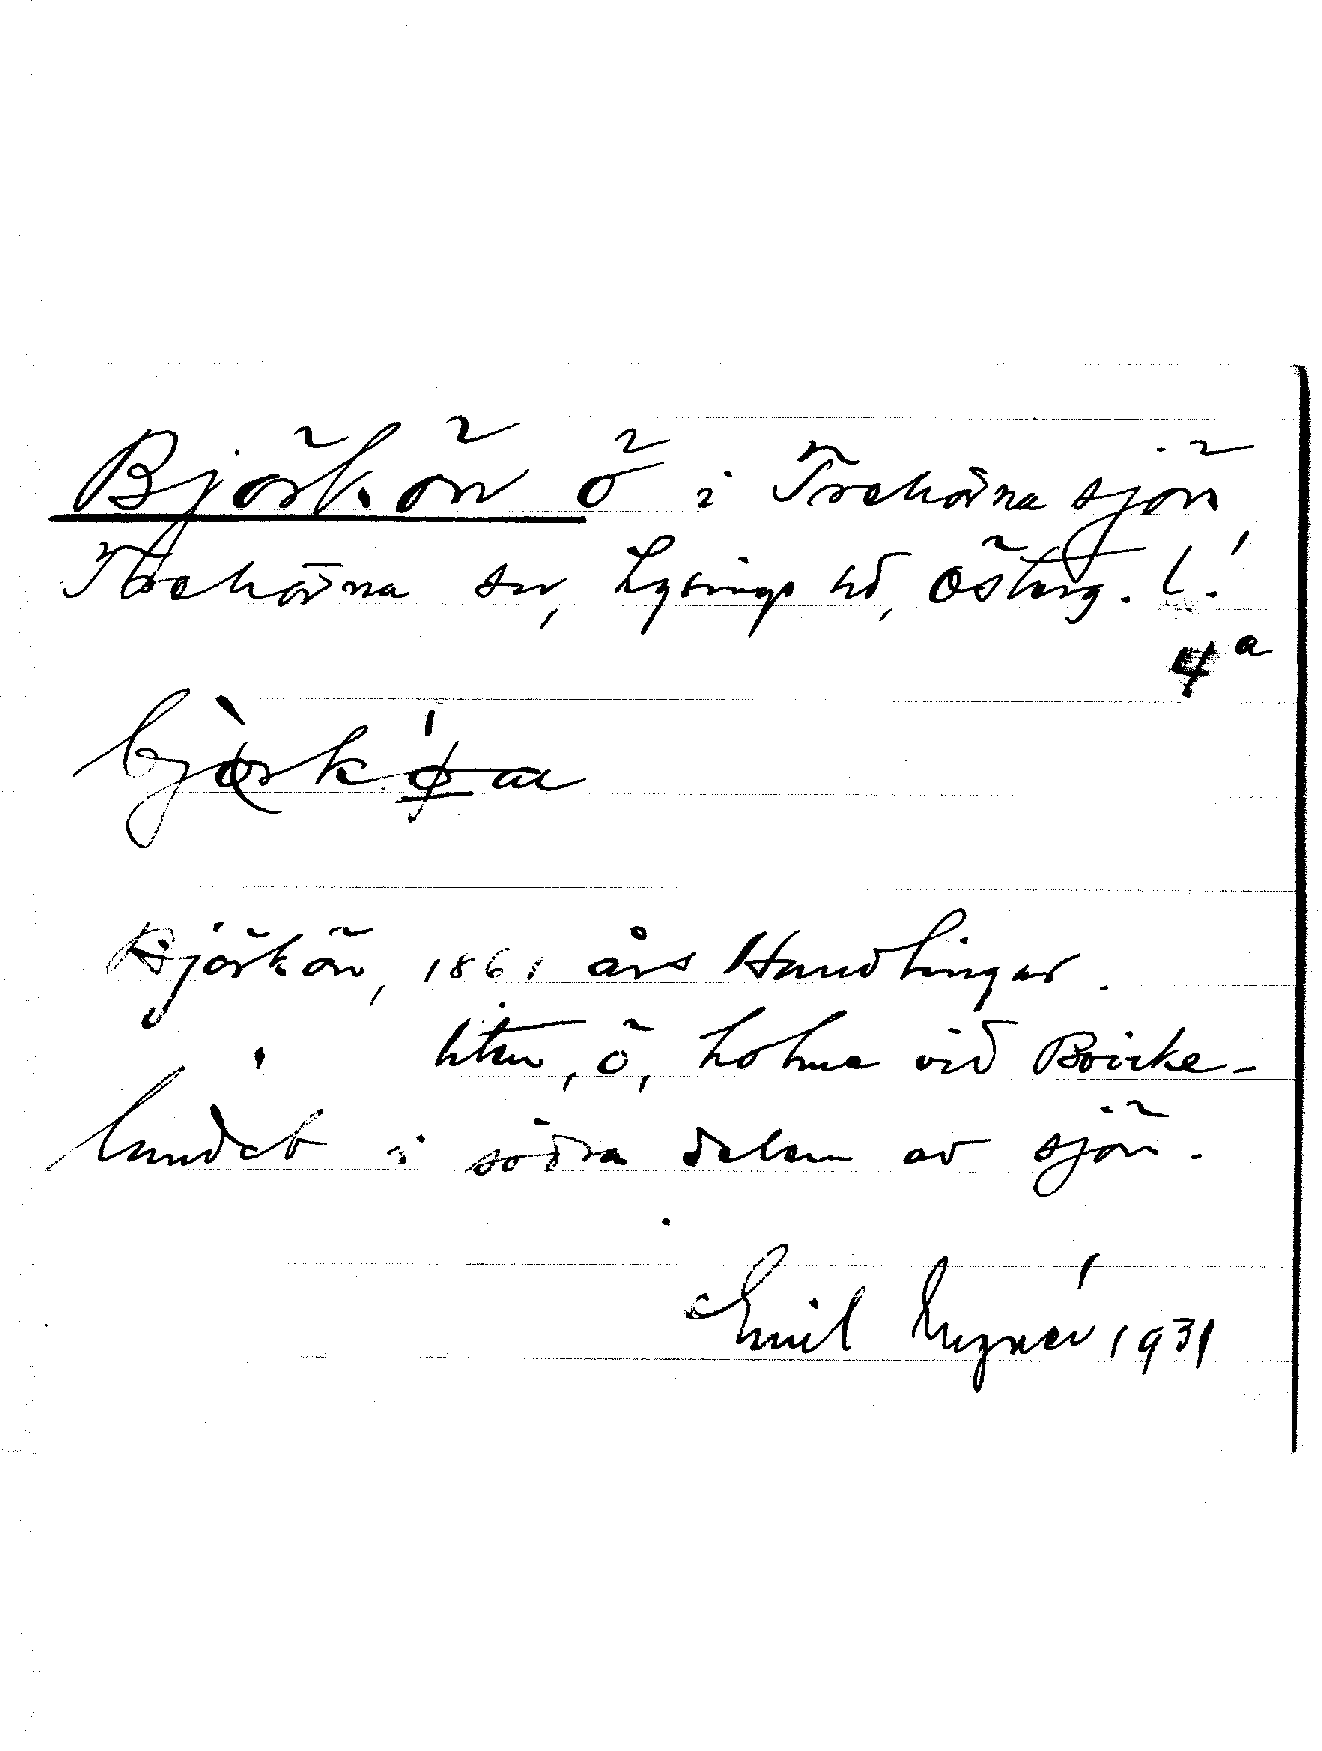 Björkön ö i Trehörnasjön
Trehörna sn, Lysings hd, Österg. l!
4a
bjø̀rkǿna
Björkön, 1861 års Handlingar.
liten, ö, holme vid Boirke-
landet i södra delen av sjön.
Emil 1931